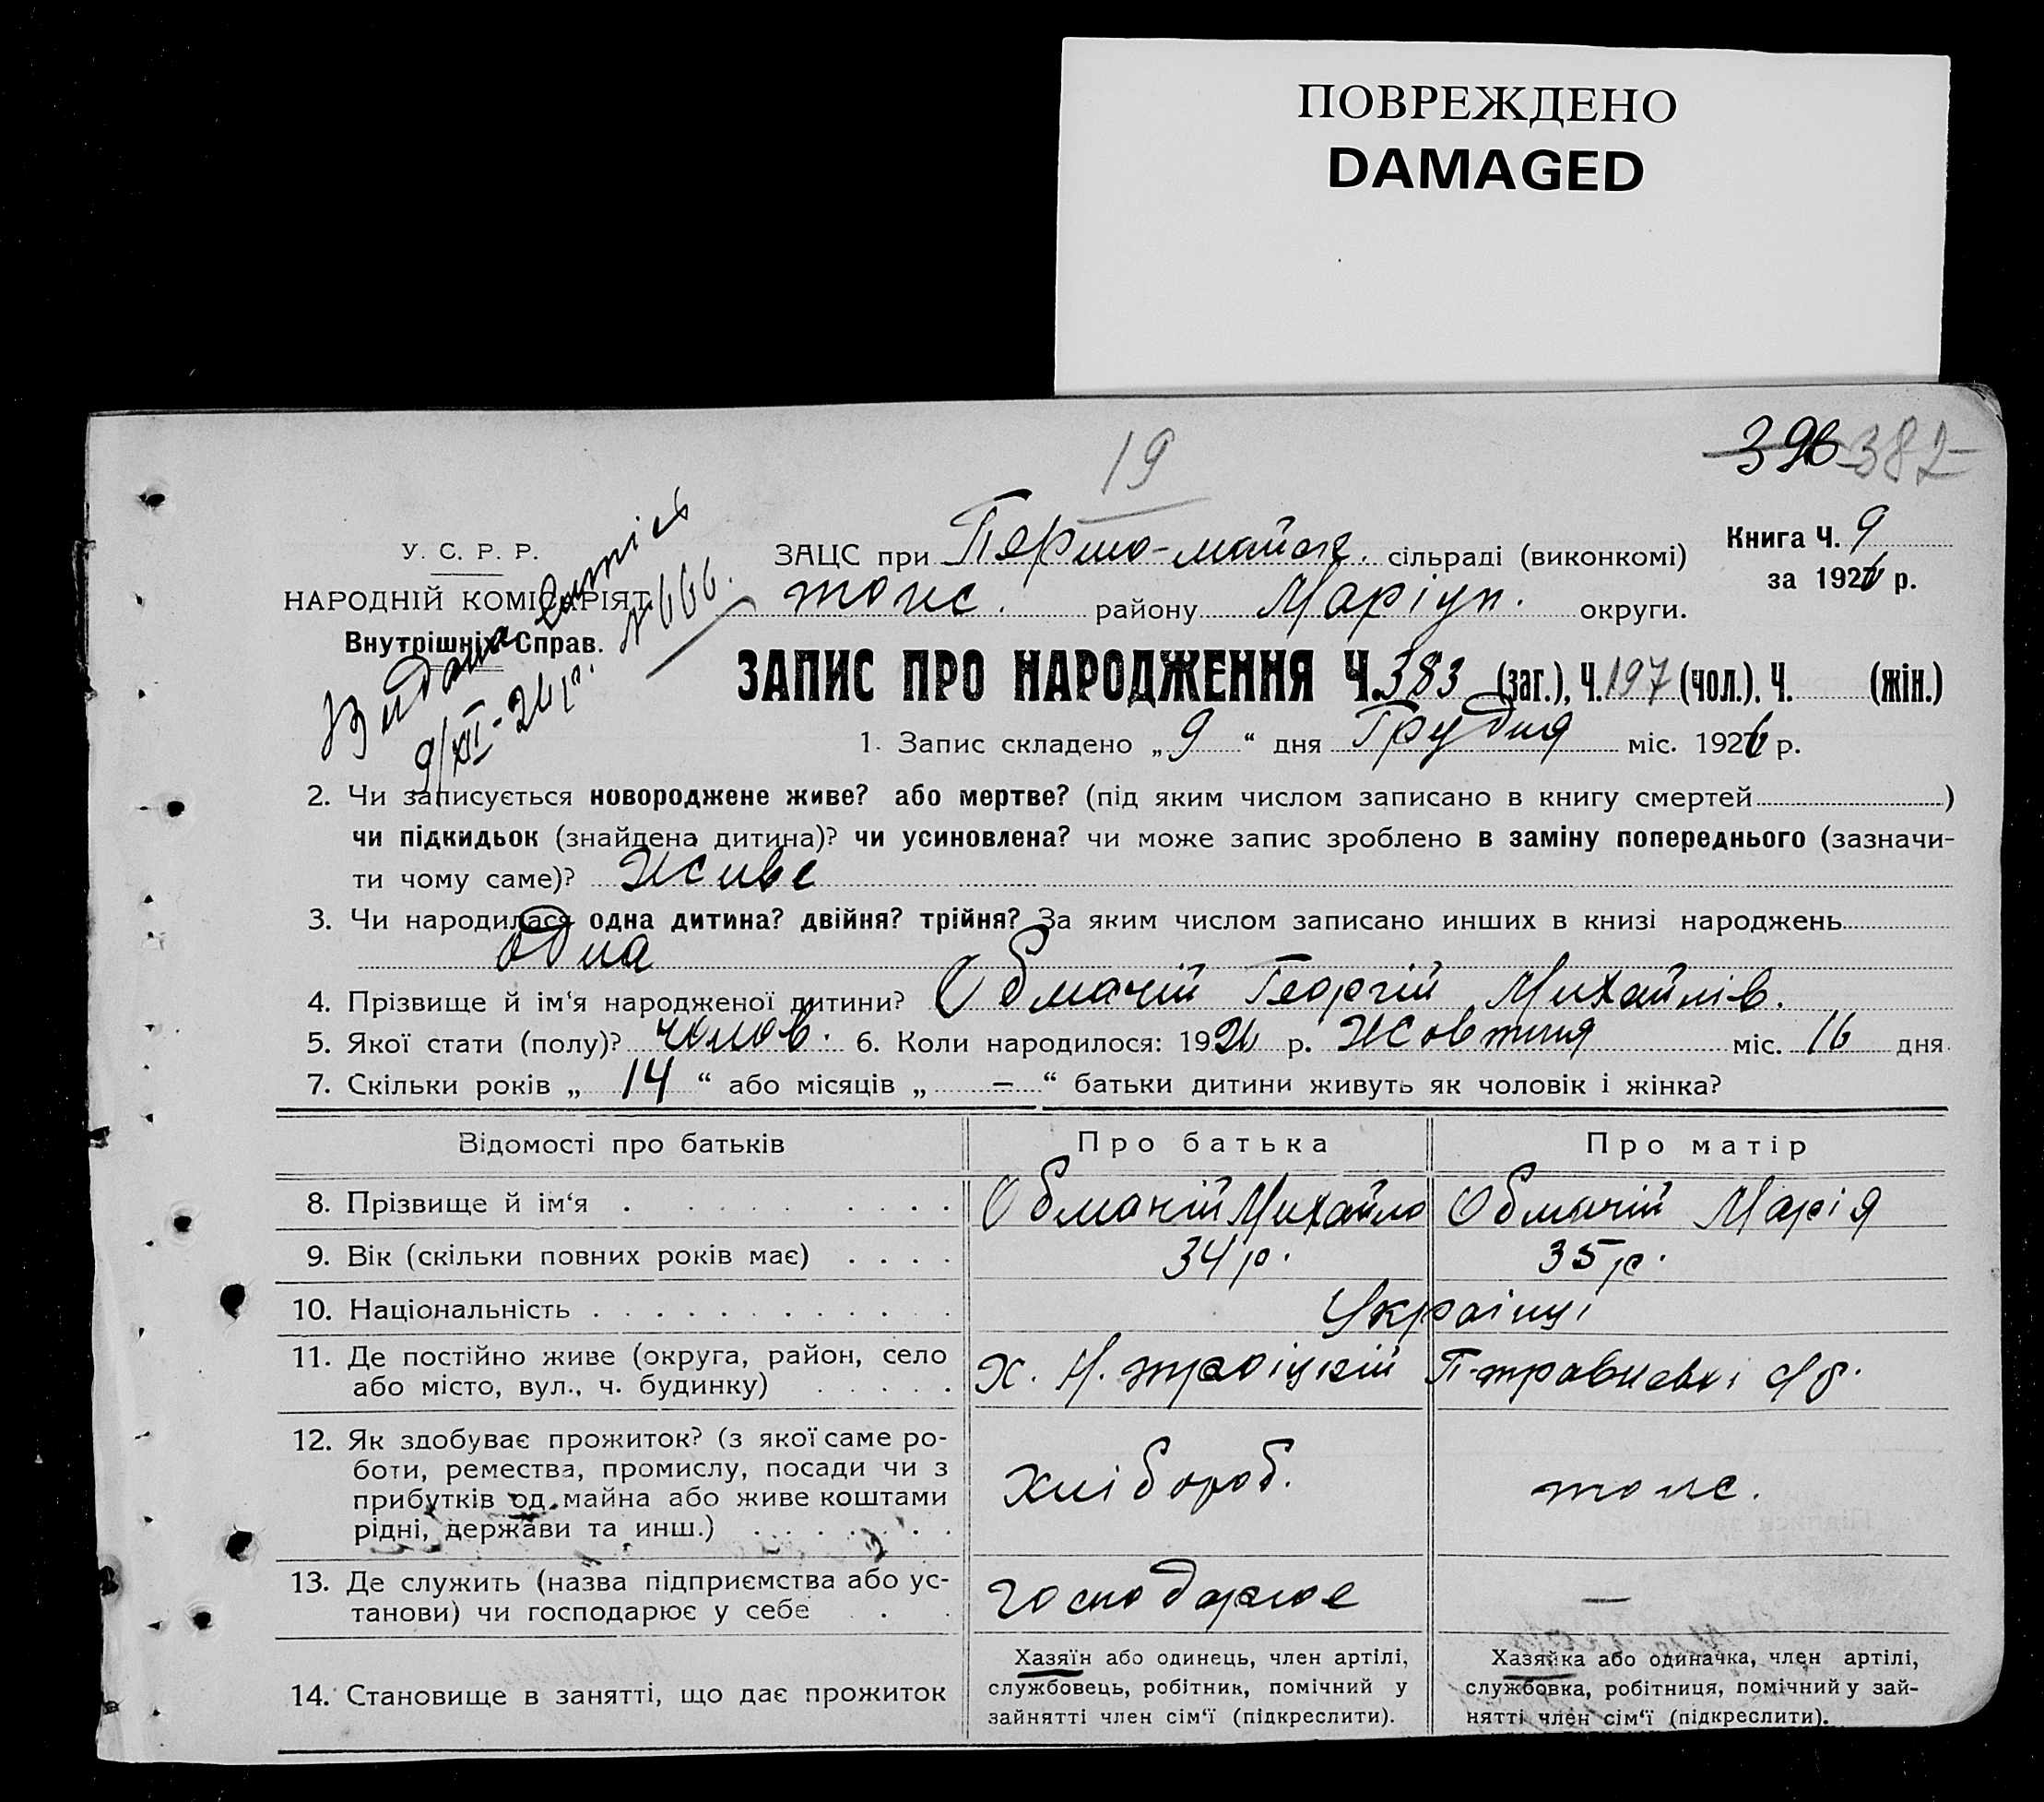 ПОВРЕЖДЕНО
DAMAGED
396 382
19
У. С. Р. Р.
НАРОДНІЙ КОМІСАРІЯТ
Внутрішніх Справ.
Видана
9/XII-26 р. № 666.
ЗАЦС при Першо-майск. сільраді (виконкомі)
Книга Ч. 9
за 1926 р.
тоже. району Маріуп. округи.
ЗАПИС ПРО НАРОДЖЕННЯ Ч. 383 (заг.), Ч. 197 (чол.), Ч. (жін.)
1. Запис складено „ 9 “ дня Грудня міс. 1926 р.
2. Чи записується новороджене живе? або мертве? (під яким числом записано в книгу смертей )
чи підкидьок (знайдена дитина)? чи усиновлена? чи може запис зроблено в заміну попереднього (зазначи-
ти чому саме)? Живе
3. Чи народилася одна дитина? двійня? трійня? За яким числом записано инших в книзі народжень
одна
4. Прізвище й ім‘я народженої дитини? Обмачій Георгій Михайлів.
5. Якої стати (полу)? чолов. 6. Коли народилося: 1926 р. Жовтня міс. 16 дня
7. Скільки років „ 14 “ або місяців „ — “ батьки дитини живуть як чоловік і жінка?
Відомості про батьків Про батька Про матір
8. Прізвище й ім‘я Обмачій Михайло Обмачій Марія
9. Вік (скільки повних років має) 34 р. 35 р.
10. Національність Українці
11. Де постійно живе (округа, район, село
або місто, вул., ч. будинку) х. Н. троіцкій П-травневої
12. Як здобуває прожиток? (з якої саме ро-
боти, ремества, промислу, посади чи з
прибутків од майна або живе коштами
рідні, держави та инш.) Хлібороб. тоже.
13. Де служить (назва підприємства або ус-
танови) чи господарює у себе господарює —
14. Становище в занятті, що дає прожиток
Хазяїн або одинець, член артілі,
службовець, робітник, помічний у
зайнятті член сім‘ї (підкреслити).
Хазяйка або одиначка, член артілі,
службовка, робітниця, помічний у зай-
нятті член сім‘ї (підкреслити).